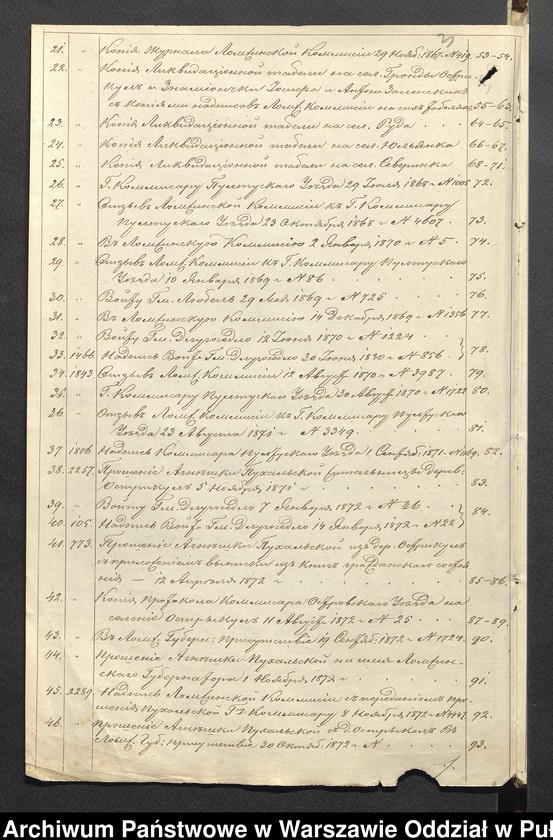 3
21. " Копія Журнала Ломжинской Коммисіи 29 Нояб. 1867 N 419. 53-54.
22. " Копія Ликвидаціонной табели на сел. Гронды Остри-
кул и Знаміончки Іосифа и Антон Заленских
съ копіями надписовъ Ломж. Коммисіи на тых табелях 55-63.
23. " Копія Ликвидаціонной табели на сел. Руда 64-65.
24. " Копія Ликвидаціонной табели на сел. Юльянка 66-67.
25. " Копія Ликвидаціонной табели на сел. Северинка 68-71.
26. " Г. Коммисару Пултускаго Уѣзда 29 Іюля 1868 г N 1005 72.
27. " Отзывъ Ломжинской Коммисіи къ Г. Коммисару
Пултускаго Уѣзда 23 Октября 1868 г N 4607. 73.
28. " Въ Ломжинскую Коммисію 2 Января 1870 г N 5. 74.
29. " Отзывъ Ломж. Коммисіи къ Г. Коммисару Пултускаго
Уѣзда 10 Января 1869 г N 86 75.
30. " Войту Гм. Любель 29 Мая 1869 г N 725 76.
31. " Въ Ломжинскую Коммисію 14 Декабря 1869 г N 1356 77.
32. " Войту Гм. Длугоседло 12 Іюня 1870 г N 1224
33. 1466 Надпись Войт. Гм. Длугоседло 20 Іюня 1830 г N 856 78.
34. 1843 Отзывъ Ломж. Коммисіи 12 Август 1870 г N 3987. 79.
35. " Г. Коммисару Пултускаго Уѣзда 30 Август 1870 г N 1722 80.
26. " Отзывъ Ломж. Коммисіи къ Г. Коммисару Пултускаго
Уѣзда 23 Августа 1871 г N 3349. 81.
37. 1806. Надпись Коммисара Пултускаго Уѣзда 1 Сентяб. 1871 г. 82.
38. 2257. Прошеніе Агнѣшки Пухальской дерев.
Острикул 5 Ноября 1871 г 83.
39. " Войту Гм. Длугоседло 7 Января 1872 г N 26
40. 105 Надпись Войт. Гм. Длугоседло 14 Января 1872 г N 22 84.
41. 773. Прошеніе Агнѣшки Пухальской изъ дер. Острикул
съ приложеніемъ выписки изъ книг гражданскаго состоя-
нія — 12 Апреля 1872 г 85-86.
42. " Копія протокола Коммисара Островскаго Уѣзда на
селеніе Острыкул 11 Август 1872 г N 25 87-89.
43. " Въ Ломж. Губерн: присутствіе 19 Сентяб. 1872 г N 1724. 90.
44. " Прошеніе Агнѣшки Пухальской на имя Ломжин-
скаго Губернатора 1 Ноября 1872 г 91.
45. 2289. Надпись Ломжинской Коммисіи съ передачіемъ про-
шенія Пухальской Гну Коммисару 8 Ноября 1872 г N 4447. 92.
46. " Прошеніе Агнѣшки Пухальской с д. Острыколъ Въ
Ломж. Губ: присутствіе 30 Октяб. 1872 г N 93.
Archiwum Państwowe w Warszawie Oddział w Puł